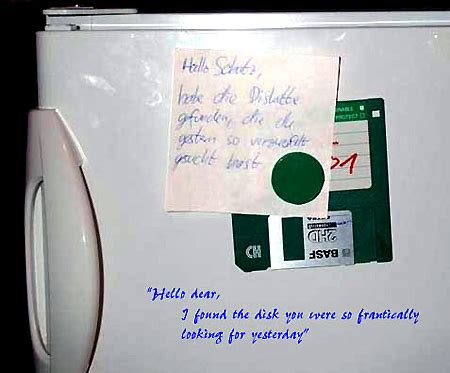 Hallo Schatz,
habe die Diskette
gefunden, die du
gestern so verzweifelt
gesucht hast.
ENABLE
PROTECT
01
CH
EXTRA
2HD
BASF
"Hello dear,
I found the disk you were so frantically
looking for yesterday"